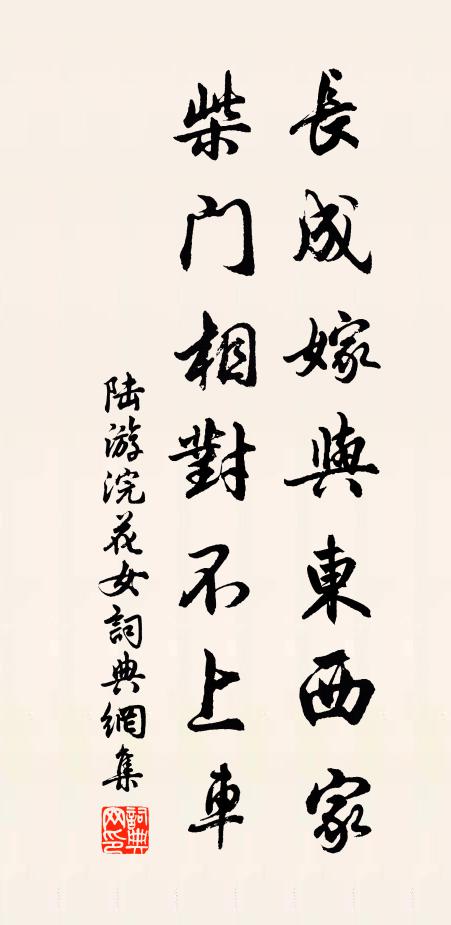 長成嫁與東西家
柴门相對不上車
陆游浣花女詞典網集
詞典
网印